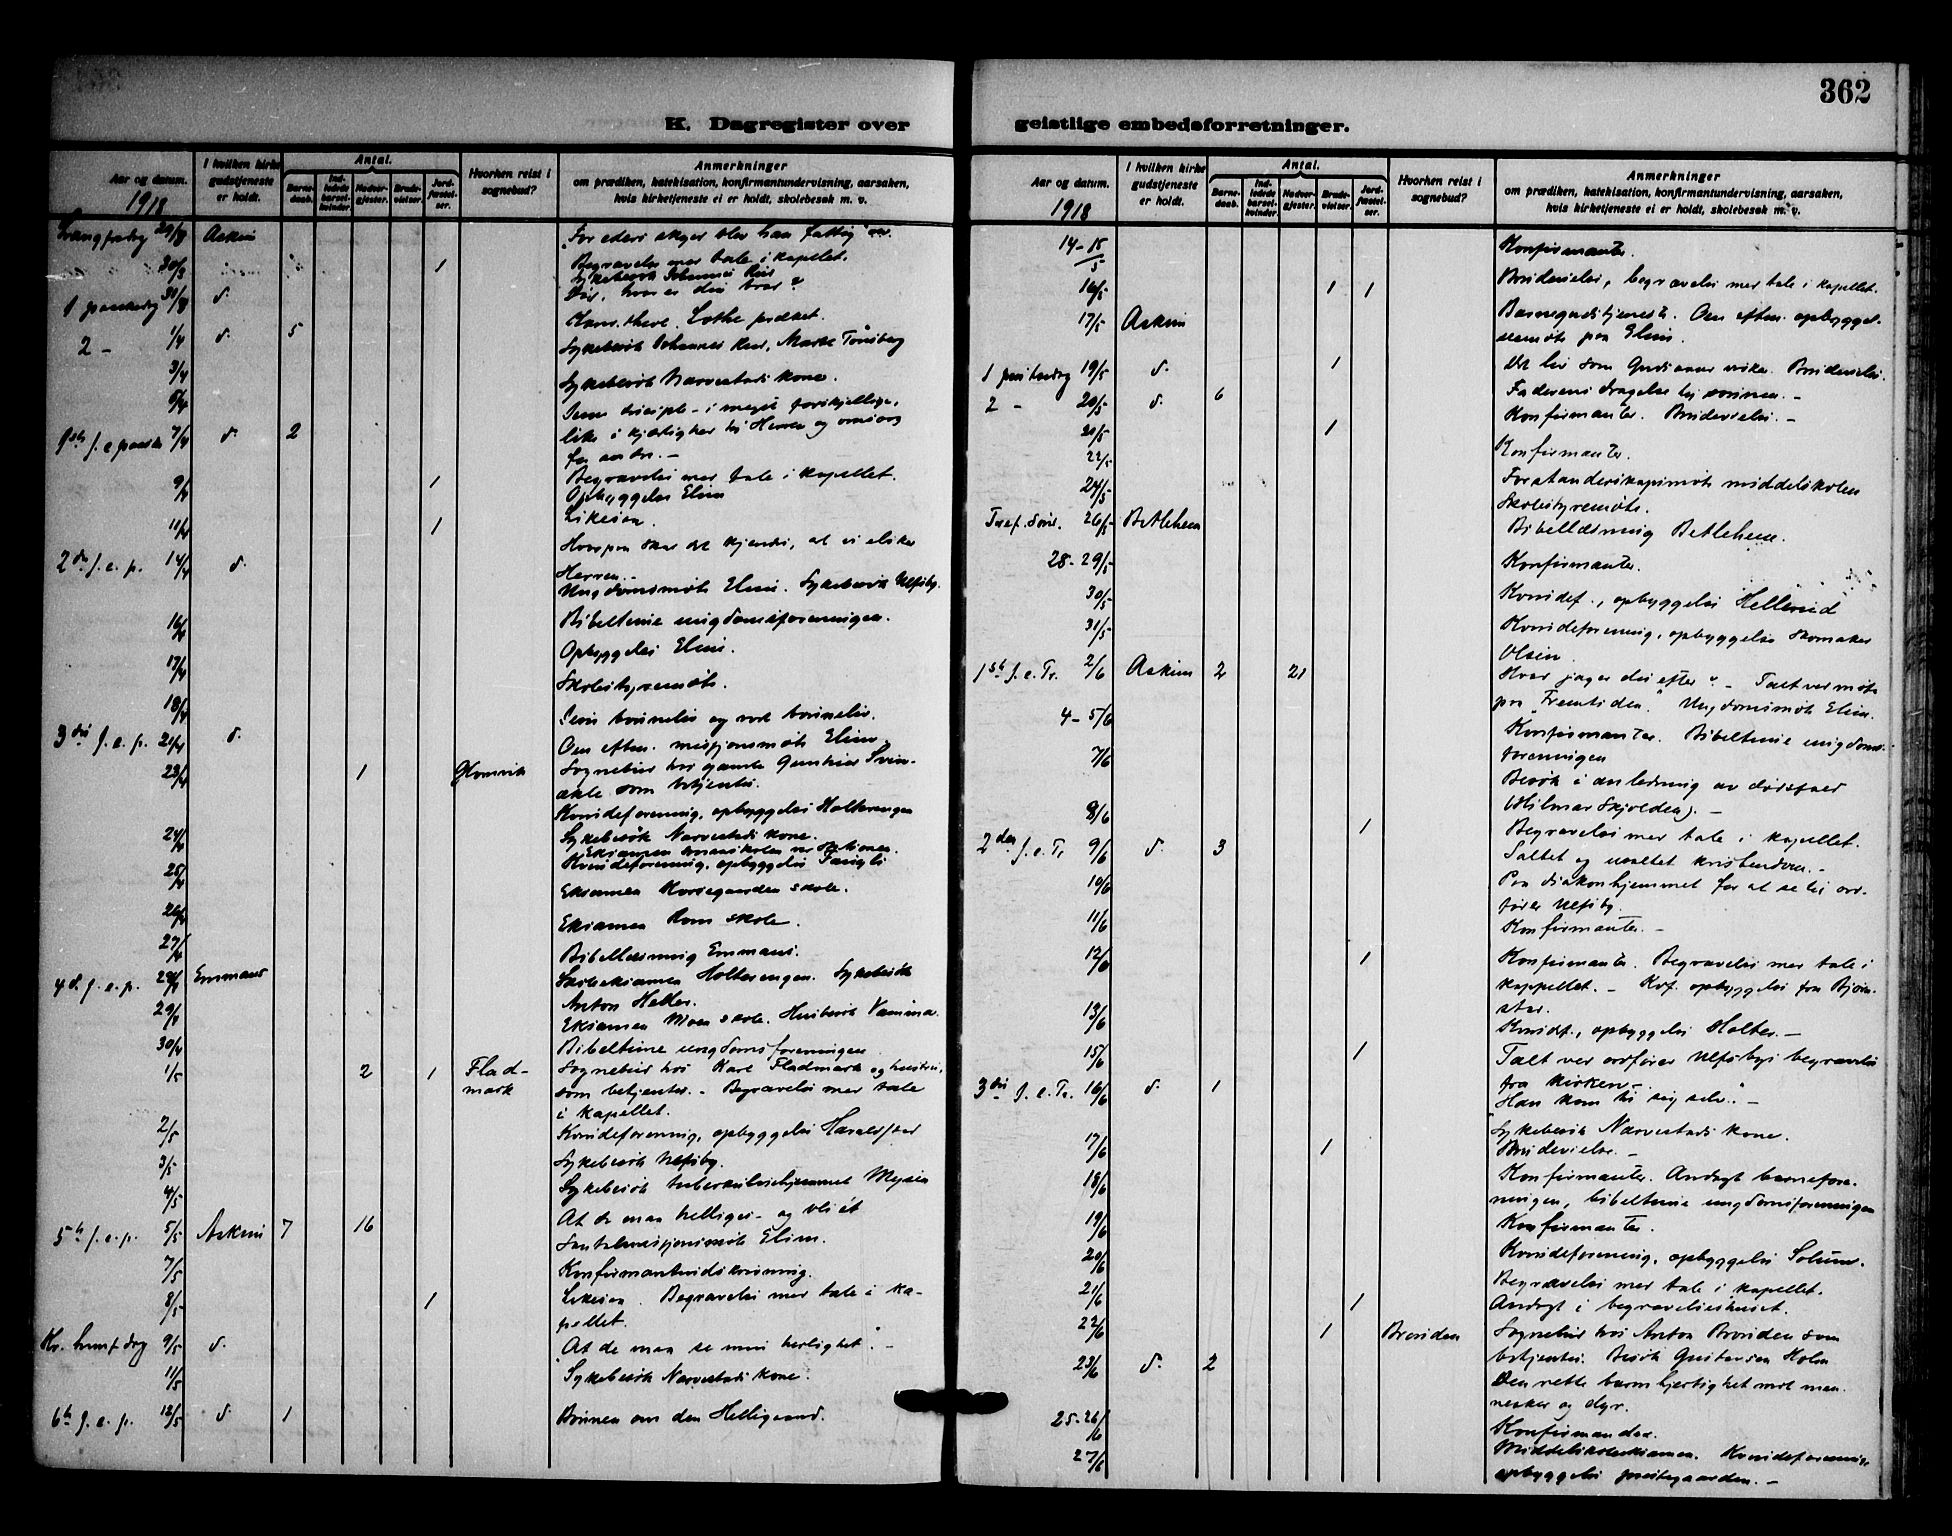 362
K. Dagregister over
geistlige embedsforretninger.
Aar og datum.
1918
I hvilken kirke gudstjeneste er holdt.
Antal.
Barne-daab.
Ind-ledede barsel-kvinder.
Nadver-gjester.
Brude-vielser.
Jord-fæstel-ser.
Hvorhen reist i sognebud?
Anmerkninger
om prædiken, katekisation, konfirmantundervisning, aarsaken,
hvis kirketjeneste ei er holdt, skolebesøk m. v.
Langfredag 29/3 Askim "For eders skyld blev han fattig"
30/3 1 Begravelse med tale i kapellet.
Sykebesøk Johannes
1 paaskedag 31/3 d. Død, hvor er din brod?
2 – 1/4 d. 5 Lothe præket.
3/4 Sykebesøk Johannes Marte Tønsberg
5/4 Sykebesøk Narvestads kone.
1ste s. e. paaske 7/4 d. 2 Jesu disciple – i meget forskjellige,
like i kjærlighet til Herren og omsorg
for andre. –
9/4 1 Begravelse med tale i kapellet.
Opbyggelse Elim
11/4 1 Likeså.
2den s. e. p. 14/4 d. Hvorpaa skal det kjendes, at vi elsker
Herren. –
Ungdomsmøte Elim. Sykebesøk Ulfsby.
16/4 Bibeltime ungdomsforeningen.
17/4 Opbyggelse Elim.
18/4 Skolestyremøte.
3die s. e. p. 21/4 d.
Om eftm. misjonsmøte Elim
23/4 1 Glomvik Sognebud hos gamle
som betjentes.
Kvindeforening, opbyggelse Holterengen
24/4 Sykebesøk Narvestads kone.
Kvindeforening, opbyggelse
25/4 Eksamen Korsegaarden skole.
26/4 Eksamen Rom skole.
27/4 Bibellæsning Emmaus.
4de s. e. p. 28/4 Emmaus Skoleeksamen Holterengen. Sykebesøk
Anton Heller.
29/4 Eksamen Moen skole. Husbesøk Vamma.
30/4 Bibeltime ungdomsforeningen
1/5 2 1 Fladmark Sognebud hos Karl Fladmark og hustru,
som betjentes. – Begravelse med tale
i kapellet.
2/5 Kvindeforening, opbyggelse Haraldstad
3/5 Sykebesøk Ulfsby.
4/5 Sykebesøk tuberkulosehjemmet Mysen
5te s. e. p. 5/5 Askim 7 16 At de maa helliges – og bli ét
Santalmisjonsmøte Elim.
7/5 Konfirmantindskrivning.
8/5 1 Likeså. Begravelse med tale i ka-
pellet.
Kr. himf. dag 9/5 d. "At de maa se min herlighet". –
11/5 Sykebesøk Narvestads kone.
6te s. e. p. 12/5 d. 1 Bønnen om den Helligaand.
Aar og datum.
1918
I hvilken kirke gudstjeneste er holdt.
Antal.
Barne-daab.
Ind-ledede barsel-kvinder.
Nadver-gjester.
Brude-vielser.
Jord-fæstel-ser.
Hvorhen reist i sognebud?
Anmerkninger
om prædiken, katekisation, konfirmantundervisning, aarsaken,
hvis kirketjeneste ei er holdt, skolebesøk m. v.
14–15/5 Konfirmanter.
16/5 1 1 Brudevielse, begravelse med tale i kapellet.
17/5 Askim Barnegudstjeneste. Om eftm. opbyggel-
sesmøte paa Elim.
1 pinsedag 19/5 d. 1 Det liv som Guds aand virker. Brudevielse.
2 – 20/5 d. 6 Faderens dragelse til sønnen. –
21/5 1 Konfirmanter. Brudevielse. –
22/5 Konfirmanter.
24/5 Forstanderskapsmøte middelskolen
Skolestyremøte.
Tref. sønd. 26/5 Betlehem Bibellæsning Betlehem.
28–29/5 Konfirmanter.
30/5 Kvindef., opbyggelse Hellerud
31/5 Kvindeforening, opbyggelse skomaker
Olsen
1ste s. e. Tr. 2/6 Askim 2 21 Hvad jager du efter? – Talt ved møte
paa "Fremtiden." Ungdomsmøte Elim.
4–5/6 Konfirmanter. Bibeltime ungdoms-
foreningen
7/6 Besøk i anledning av dødsfald
(Hilmar Skjolden). –
8/6 1 Begravelse med tale i kapellet.
2den s. e. Tr. 9/6 d. 3 Saltet og usaltet kristendom. –
10/6 Paa diakonhjemmet for at se til ord-
fører Ulfsby.
11/6 Konfirmanter. –
12/6 1 Konfirmanter. Begravelse med tale i
kappellet. – Kvf. opbyggelse fra Bjørn-
stad.
13/6 Kvindf., opbyggelse Holter. –
15/6 1 Talt ved ordfører Ulfsbys begravelse
fra kirken –.
3die s. e. Tr. 16/6 d. 1 "Han kom til sig selv". –
Sykebesøk Narvestads kone.
17/6 1 Brudevielse. –
18/6 Konfirmanter. Andagt barnefore-
ningen, bibeltime ungdomsforeningen
19/6 Konfirmanter.
20/6 Kvindeforening, opbyggelse Solum.
21/6 1 Begravelse med tale i kapellet.
Andagt i begravelseshuset.
22/6 1 Broviden Sognebud hos Anton Broviden som
betjentes. Besøk Gustavsen Holm
23/6 d. 2 Den rette barmhjertighet mot men-
nesker og dyr.
25–26/6 Konfirmander.
27/6 Middelskoleeksamen. Kvindeforening,
opbyggelse prestegaarden. –